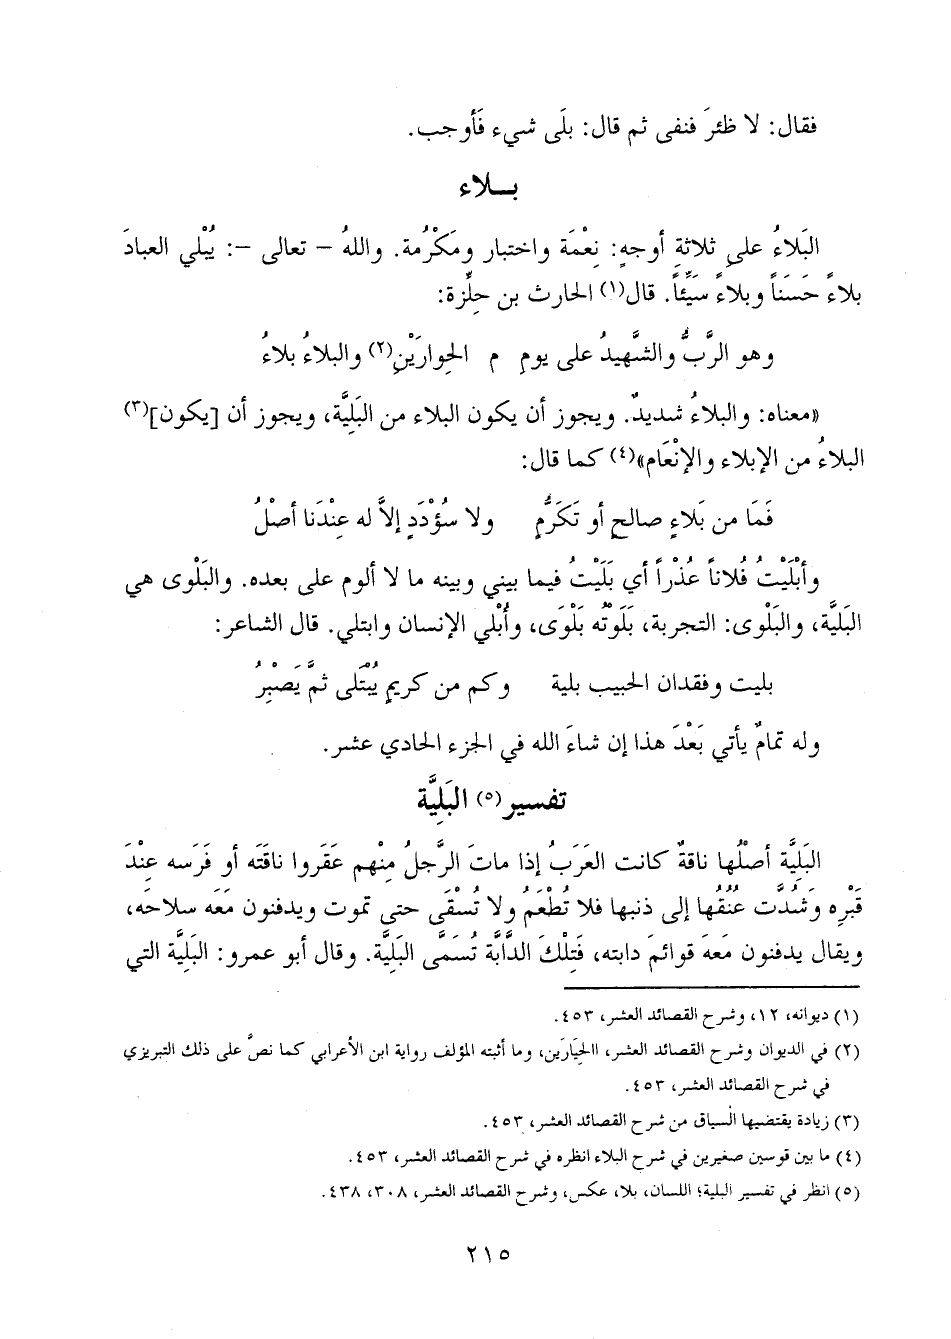 فقال: لا ظئرَ فنفى ثم قال: بلَى شيء فَأوجب.
بــلاء
البَلاءُ على ثلاثةِ أوجهٍ: نِعْمَة واختبار ومَكْرُمة. واللهُ – تعالى –: يُبْلي العبادَ
بلاءً حَسَناً وبلاءً سَيِّئاً. قال(١) الحارث بن حلِّزة:
وهو الرَّبُّ والشَّهيدُ على يومِ م الحِوارَيْنِ(٢) والبلاءُ بلاءُ
«معناه: والبلاءُ شديدٌ. ويجوز أن يكون البلاء من البَلِيَّة، ويجوز أن [يكون](٣)
البلاءُ من الإبلاء والإنْعَام»(٤) كما قال:
فَمَا من بَلاءٍ صالحٍ أو تَكَرُّمٍ ولا سُؤْدَدٍ إلاَّ له عِنْدَنا أصْلُ
وأبْلَيْتُ فُلاناً عُذْراً أي بَلَيْتُ فيما بيني وبينه ما لا ألوم على بعده. والبَلْوى هي
البَلَيَّة، والبَلْوى: التجربة، بَلَوْتُه بَلْوَى، وأُبْلي الإنسان وابتلي. قال الشاعر:
بليت وفقدان الحبيب بلية وكم من كريمٍ يُبْتَلى ثمَّ يَصْبِرُ
وله تمامٌ يأتي بَعْدَ هذا إن شاءَ الله في الجزء الحادي عشر.
تفسير(٥) البَلِيَّة
البَلِيَّة أصْلُها ناقةٌ كانت العَرَبُ إذا ماتَ الرَّجلُ مِنْهم عَقَروا ناقَتَه أو فَرَسه عِنْدَ
قَبْرِه وَشُدَّت عُنُقُها إلى ذنبها فلا تُطْعَمُ ولا تُسْقَى حتى تموت ويدفنون مَعَه سلاحَه،
ويقال يدفنون مَعَه قوائمَ دابته، فَتِلْكَ الدَّابَّة تُسَمَّى البَلِيَّة. وقال أبو عمرو: البَلِيَّة التي
(١) ديوانه، ١٢، وشرح القصائد العشر، ٤٥٣.
(٢) في الديوان وشرح القصائد العشر، االحِيَارَين، وما أثبته المؤلف رواية ابن الأعرابي كما نصَّ على ذلك التبريزي
في شرح القصائد العشر، ٤٥٣.
(٣) زيادة يقتضيها السياق من شرح القصائد العشر، ٤٥٣.
(٤) ما بين قوسين صغيرين في شرح البلاء انظره في شرح القصائد العشر، ٤٥٣.
(٥) انظر في تفسير البلية؛ اللسان، بلا، عكس، وشرح القصائد العشر، ٣٠٨، ٤٣٨.
٢١٥